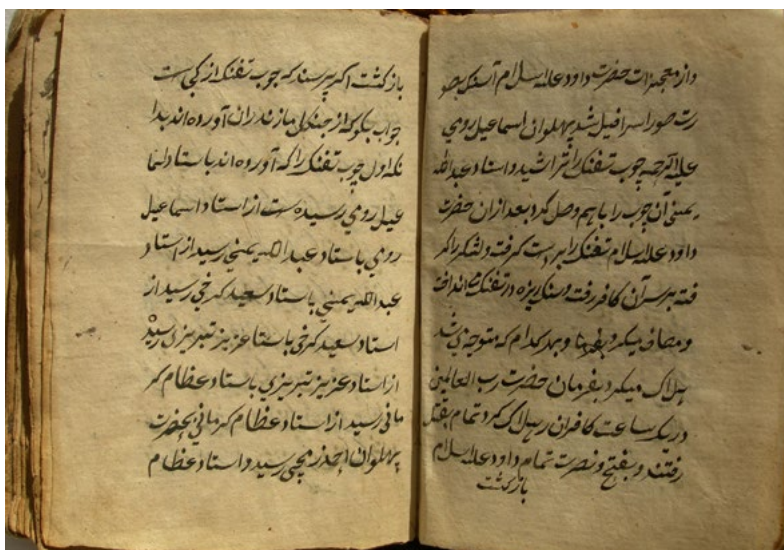 واز معجزات حضرت داود علیه اسلام آنستکه بصو
رت صور اسرافیل شد پهلوان اسماعیل رومی
علیه الرحمه چوب تفنک را تراشید و استاد عبدالله
یمنی آن چوب را باهم وصل کرد بعد ازان حضرت
داود علیه اسلام تفنک را بردست کرفت و لشکر را کر
فته برسر آن کافر رفت و سنک ریزه در تفنک می انداخت
و مصاف میکرد و بهر کدام که متوجه می شد
هلاک میکرد بفرمان حضرت رب العالمین
در یک ساعت کافران را هلاک کرد تمام بقتل
رفتند و بفتح و نصرت تمام داود علیه اسلام
باز کشت
باز کشت اکر پرسند که چوب تفنک از کجاست
جواب بکو که از جنکل مازندران آورده اند بدا
نکه اول چوب تفنک را که آورده اند باستاد اسما
عیل رومی رسیده است از استاد اسماعیل
رومی باستاد عبدالله یمنی رسید از استاد
عبدالله یمنی باستاد سعید کرخی رسید از
استاد سعید کرخی باستا عزیز تبریزی رسید
از استاد عزیز تبریزی باستاد عظام کر
مانی رسید از استاد عظام کرمانی بحضرت
پهلوان رسید و استاد عظام